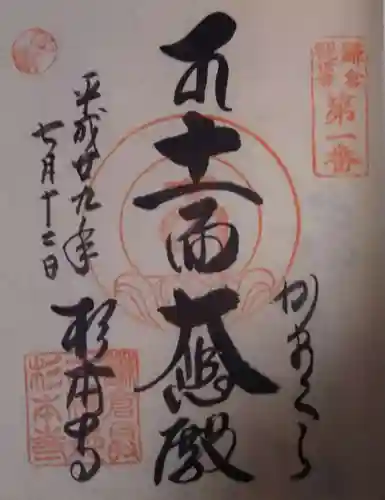 鎌倉
観音
第一番
かまくら
十一面大悲殿
平成廿九年
七月十七日
杉本寺